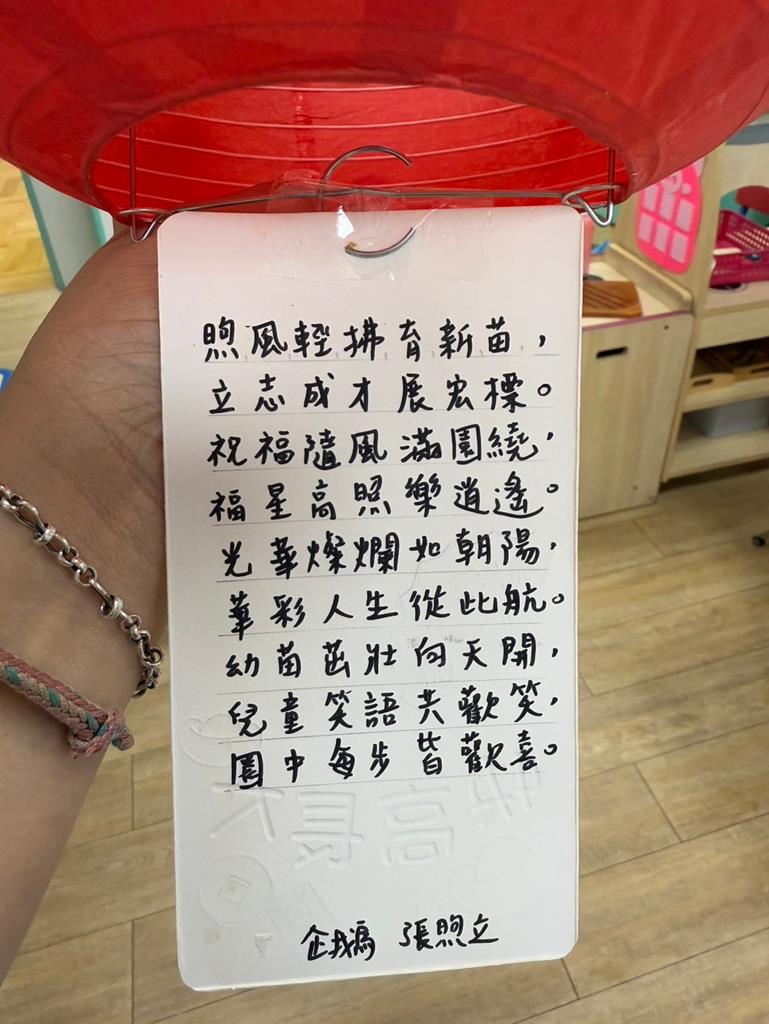 煦風輕拂育新苗，
立志成才展宏標。
祝福隨風滿園繞，
福星高照樂逍遙。
光華燦爛如朝陽，
華彩人生從此航。
幼苗茁壯向天開，
兒童笑語共歡笑，
園中每步皆歡喜。
快高長大
企鵝 張煦立